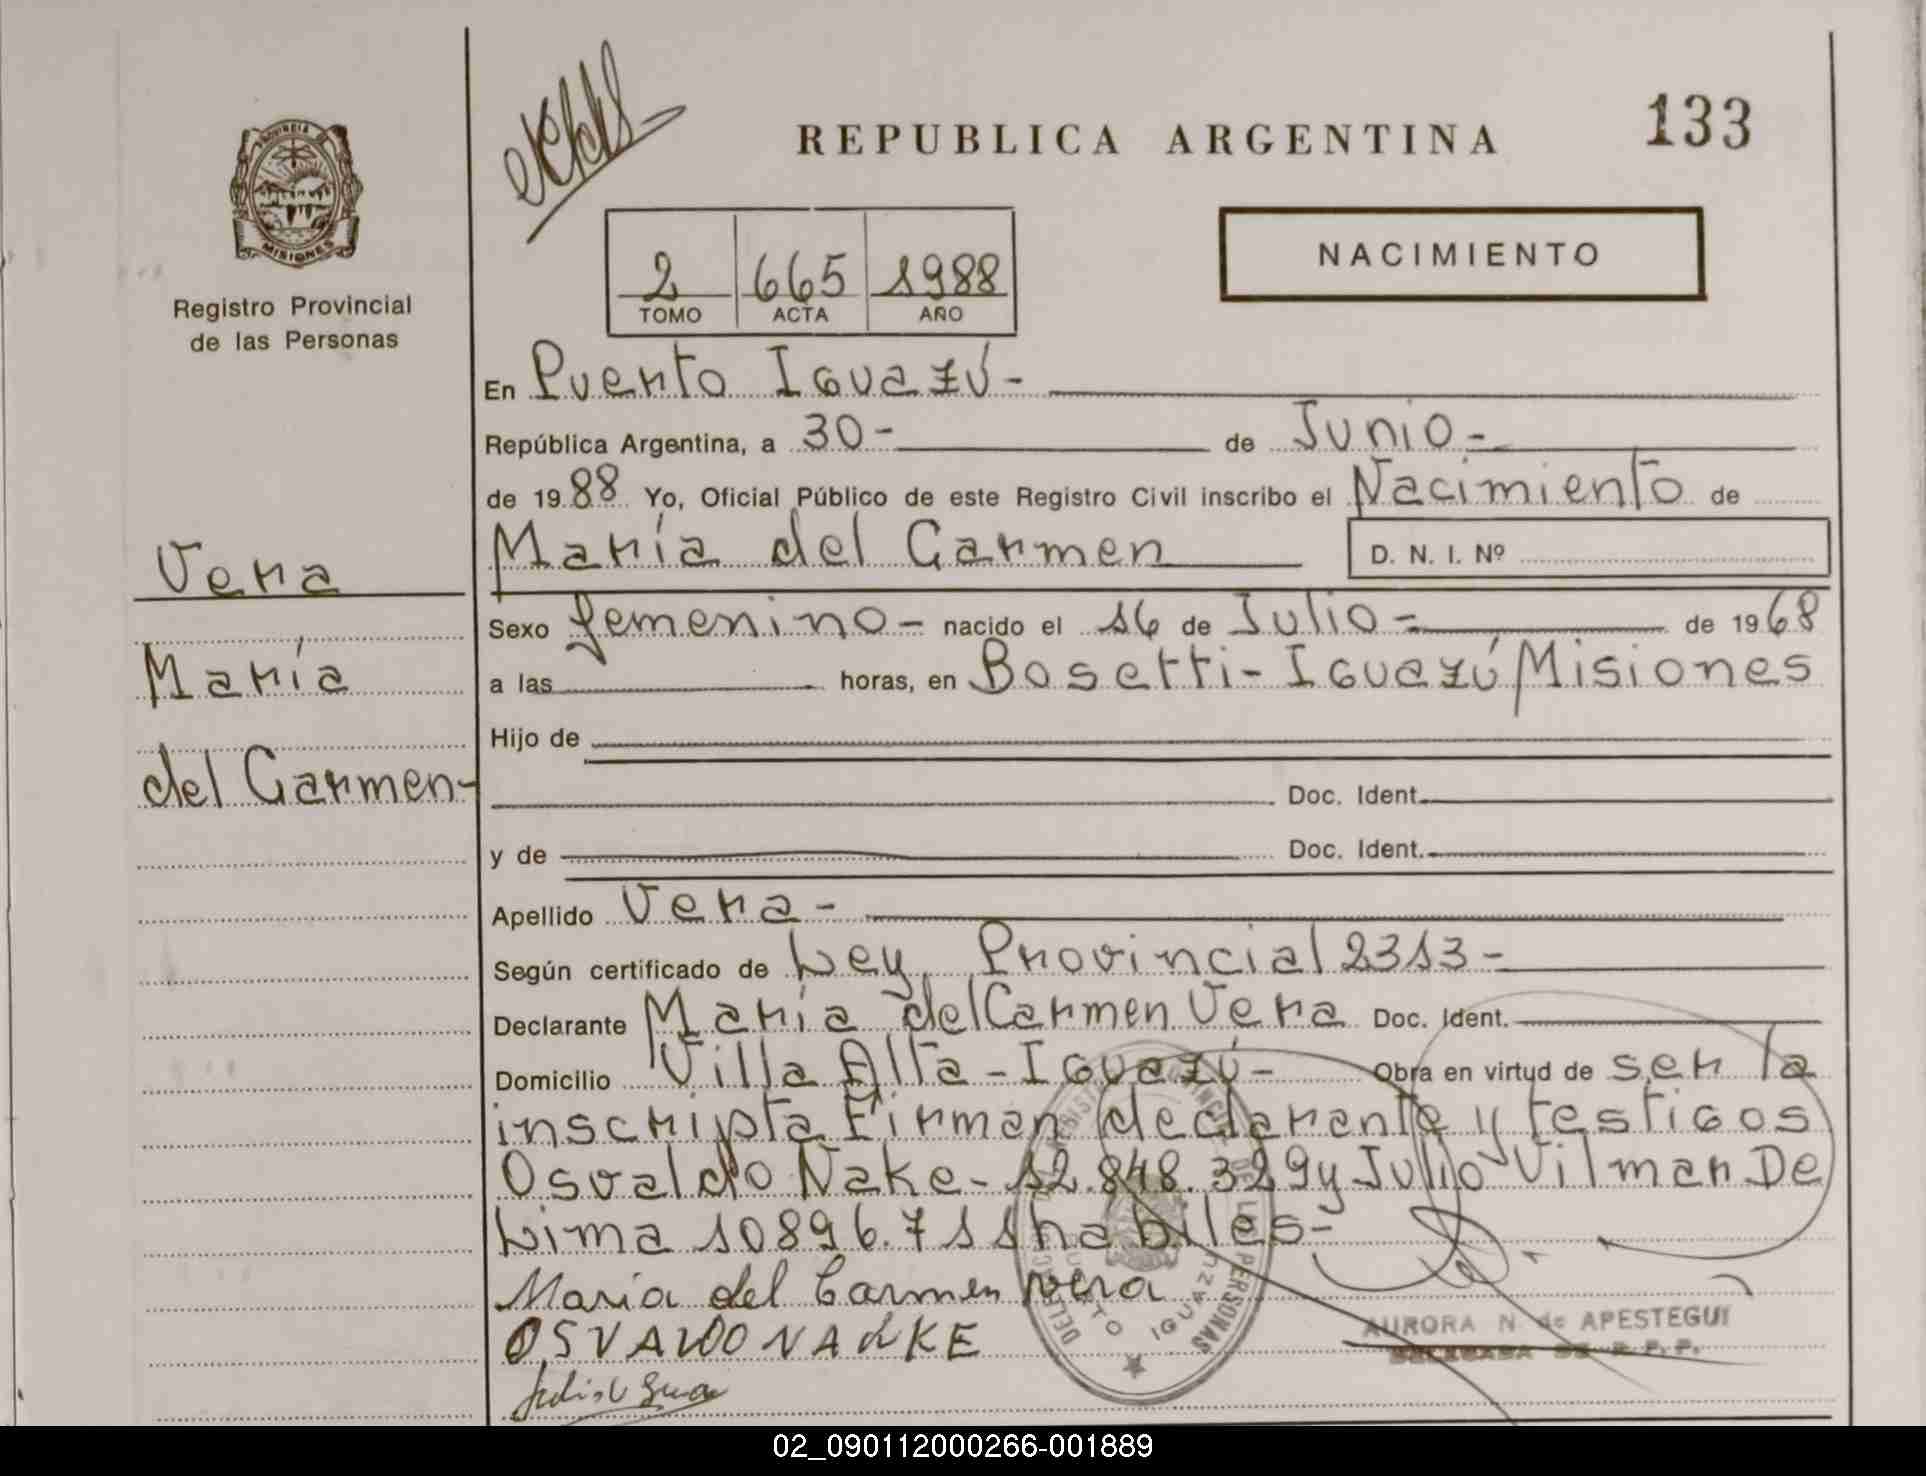 REPUBLICA ARGENTINA
133
PROVINCIA DE
MISIONES
Registro Provincial
de las Personas
NACIMIENTO
2 665 1988
TOMO ACTA AÑO
En Puerto Iguazú-
República Argentina, a 30- de Junio-
de 1988 Yo, Oficial Público de este Registro Civil inscribo el Nacimiento de
María del Carmen D. N. I. Nº
Vera
María
del Carmen-
Sexo femenino- nacido el 16 de Julio- de 1968
a las horas, en Bosetti- Iguazú Misiones
Hijo de
Doc. Ident.
y de Doc. Ident.
Apellido Vera-
Según certificado de Ley Provincial 2313-
Declarante María del Carmen Vera Doc. Ident.
Domicilio Villa Alta- Iguazú- Obra en virtud de ser la
inscripta Firman declarante y testigos
Osvaldo Nake- 12.848.329 y Julio Vilmar De
Lima 10896.711 habiles-
Maria del Carmen vera
OSVALDO
AURORA N de APESTEGUI
DELEGADA DE R.P.P.
PUERTO IGUAZU
02_090112000266-001889